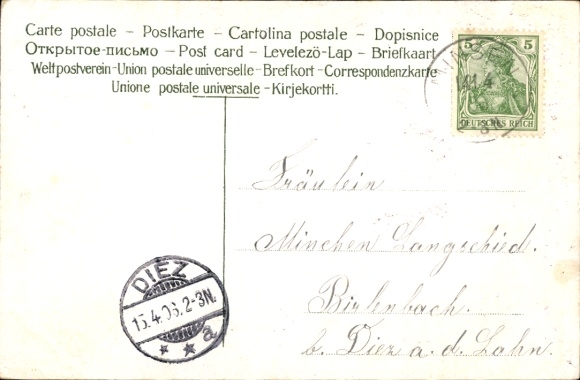 Carte postale – Postkarte – Cartolina postale – Dopisnice
Открытое-письмо – Post card – Levelezö-Lap – Briefkaart
Weltpostverein-Union postale universelle-Brefkort-Correspondenzkarte
Unione postale universale -Kirjekortti.
5 5
DEUTSCHES REICH
Fräulein
Minchen Langschied.
Birlenbach.
b. Diez a. d. Lahn.
DIEZ
15.4.06.2-3N.
* * a